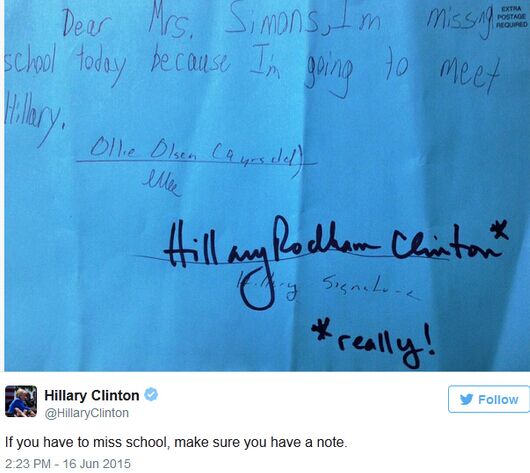 EXTRA
POSTAGE
REQUIRED
Dear Mrs. Simons, I'm missing
school today because I'm going to meet
Hillary.
Ollie Olsen (9 yrs old)
Hillary Rodham Clinton*
Hillary Signature
*really!
Hillary Clinton
@HillaryClinton
Follow
If you have to miss school, make sure you have a note.
2:23 PM - 16 Jun 2015